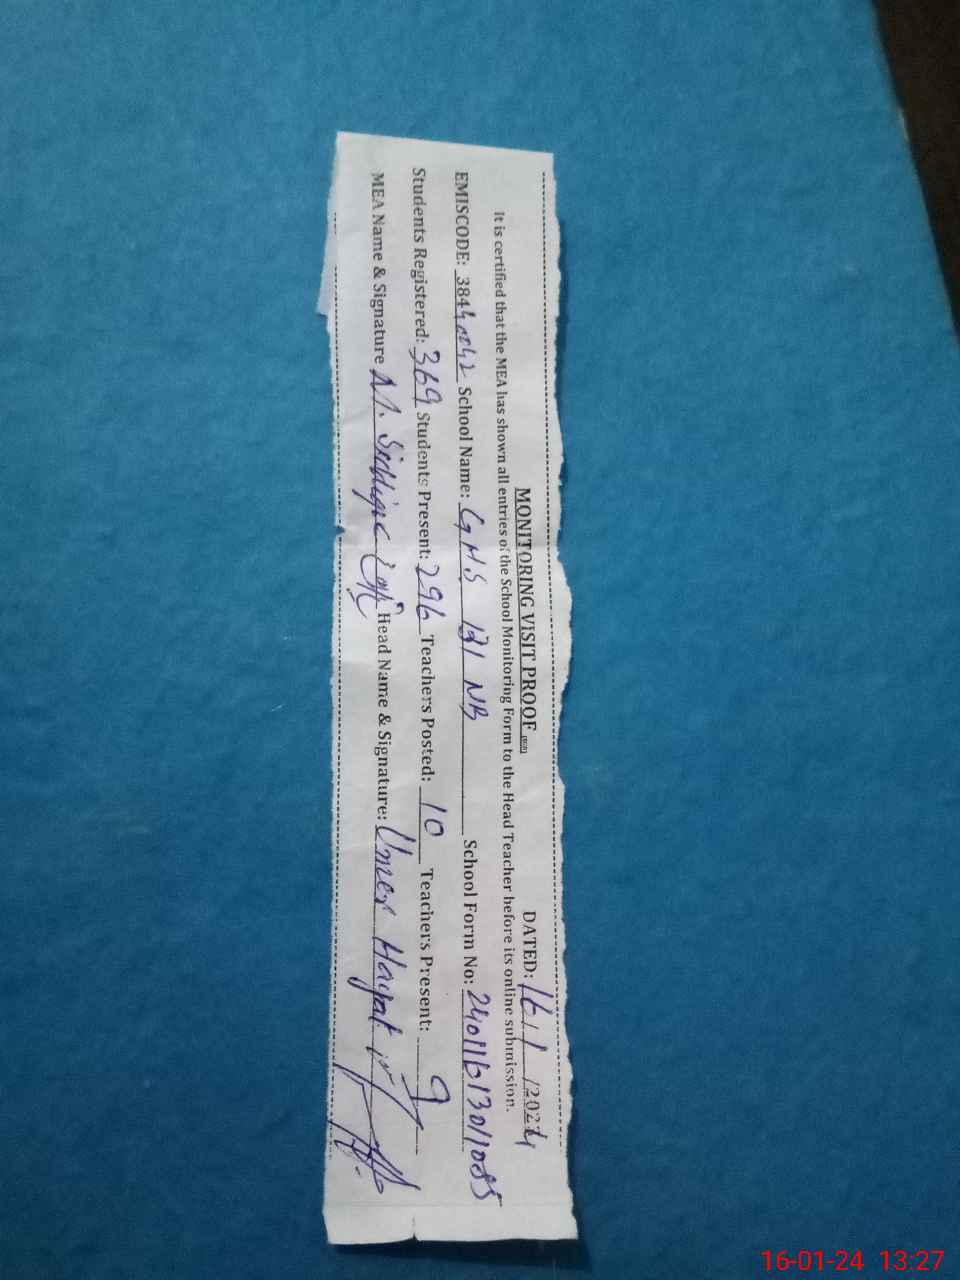 MONITORING VISIT PROOF DATED: 16/1/2024
It is certified that the MEA has shown all entries of the School Monitoring Form to the Head Teacher before its online submission.
EMISCODE: 38440042 School Name: GHS 131 NB School Form No: 24011613011085
Students Registered: 369 Students Present: 296 Teachers Posted: 10 Teachers Present: 9
MEA Name & Signature M. Siddique Head Name & Signature: Umer Hayat
16-01-24 13:27